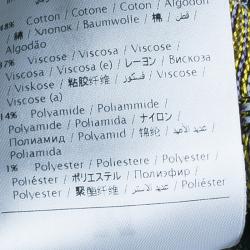 48% Cotton / Cotone / Coton / Algodón
綿 / Хлопок / Baumwolle / 棉 / قطن
Algodão
37% Viscose / Viscosa / Viscose /
Viscosa / Viscosa (e) / レーヨン / Вискоза
/ Viskose / 粘胶纤维 / فسكوز /
Viscose (a)
14% Polyamide / Poliammide /
Polyamide / Poliamida / ナイロン /
Полиамид / Polyamid / 锦纶 /
Poliamida
1% Polyester / Poliestere / Polyester /
Poliéster / ポリエステル / Полиэфир /
Polyester / 聚酯纤维 / / Poliéster